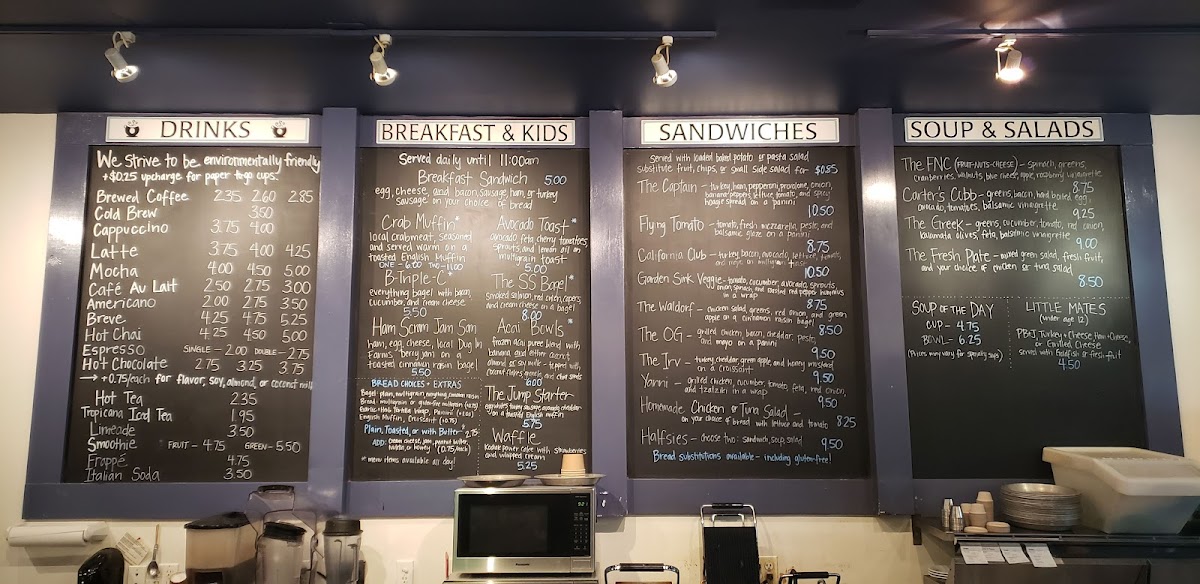 DRINKS
We strive to be environmentally friendly
+$0.25 upcharge for paper to go cups.
Brewed Coffee 2.35 2.60 2.85
Cold Brew 3.50
Cappuccino 3.75 4.00
Latte 3.75 4.00 4.25
Mocha 4.00 4.50 5.00
Café Au Lait 2.50 2.75 3.00
Americano 2.00 2.75 3.50
Breve 4.25 4.75 5.25
Hot Chai 4.25 4.50 5.00
Espresso SINGLE - 2.00 DOUBLE - 2.75
Hot Chocolate 2.75 3.25 3.75
→ +0.75/each for flavor, soy, almond, or coconut milk
Hot Tea 2.35
Tropicana Iced Tea 1.95
Limeade 3.50
Smoothie FRUIT - 4.75 GREEN - 5.50
Frappé 4.75
Italian Soda 3.50
BREAKFAST & KIDS
Served daily until 11:00am
Breakfast Sandwich 5.00
egg, cheese, and bacon, sausage, ham, or turkey
sausage on your choice of bread
Crab Muffin*
local crabmeat, seasoned
and served warm on a
toasted English Muffin
ONE - 6.00 TWO - 11.00
B-Triple-C*
everything bagel with bacon,
cucumber, and cream cheese
5.50
Ham Scram Jam Sam
ham, egg, cheese, local Dug In
Farms berry jam on a
toasted cinnamon raisin bagel
5.50
Avocado Toast*
avocado, feta, cherry tomatoes,
sprouts, and lemon oil on
multigrain toast
5.00
The SS Bagel*
smoked salmon, red onion, capers,
and cream cheese on a bagel
8.00
Acai Bowls*
frozen acai puree blend with
banana, and either coconut,
almond, or soy milk - topped with
coconut flakes, granola, and chia seeds
6.00
BREAD CHOICES + EXTRAS
Bagel: plain, multigrain, everything, cinnamon raisin
Bread: multigrain or gluten-free multigrain (0.75)
Garlic-Herb Tortilla Wrap, Panini (0.50)
English Muffin, Croissant (0.75)
Plain, Toasted, or with Butter - 2.75
ADD: Cream cheese, jam, peanut butter,
nutella, or honey (0.75/each)
* menu items available all day!
The Jump Starter
egg whites, turkey sausage, avocado, cheddar
on a toasted English muffin
5.75
Waffle
Kodiak power cake with strawberries
and whipped cream
5.25
SANDWICHES
Served with loaded baked potato or pasta salad
substitute fruit, chips, or small side salad for $0.85
The Captain - turkey, ham, pepperoni, provolone, onion,
banana peppers, lettuce, tomato, and spicy
hoagie spread on a panini
10.50
Flying Tomato - tomato, fresh mozzarella, pesto, and
balsamic glaze on a panini
8.75
California Club - turkey, bacon, avocado, lettuce, tomato,
and mayo on multigrain toast
10.50
Garden Sink Veggie - tomato, cucumber, avocado, sprouts,
onion, spinach, and roasted red pepper hummus
in a wrap
8.75
The Waldorf - chicken salad, greens, red onion, and green
apple on a cinnamon raisin bagel
8.50
The OG - grilled chicken, bacon, cheddar, pesto,
and mayo on a panini
9.50
The Irv - turkey, cheddar, green apple, and honey mustard
on a croissant
9.50
Yanni - grilled chicken, cucumber, tomato, feta, red onion,
and tzatziki in a wrap
9.50
Homemade Chicken or Tuna Salad -
on your choice of bread with lettuce and tomato 8.25
Halfsies - choose two: sandwich, soup, salad 9.50
Bread substitutions available - including gluten-free!
SOUP & SALADS
The FNC (FRUIT-NUTS-CHEESE) - spinach, greens,
cranberries, walnuts, blue cheese, apple, raspberry vinaigrette
8.75
Carter's Cobb - greens, bacon, hard boiled egg,
avocado, tomatoes, balsamic vinaigrette
9.25
The Greek - greens, cucumber, tomato, red onion,
kalamata olives, feta, balsamic vinaigrette
9.00
The Fresh Plate - mixed green salad, fresh fruit,
and your choice of chicken or tuna salad
8.50
SOUP OF THE DAY
CUP - 4.75
BOWL - 6.25
(Prices may vary for specialty soups)
LITTLE MATES
(under age 12)
PB&J, Turkey + Cheese, Ham + Cheese,
or Grilled Cheese
Served with Goldfish or fresh fruit
4.50
Panasonic